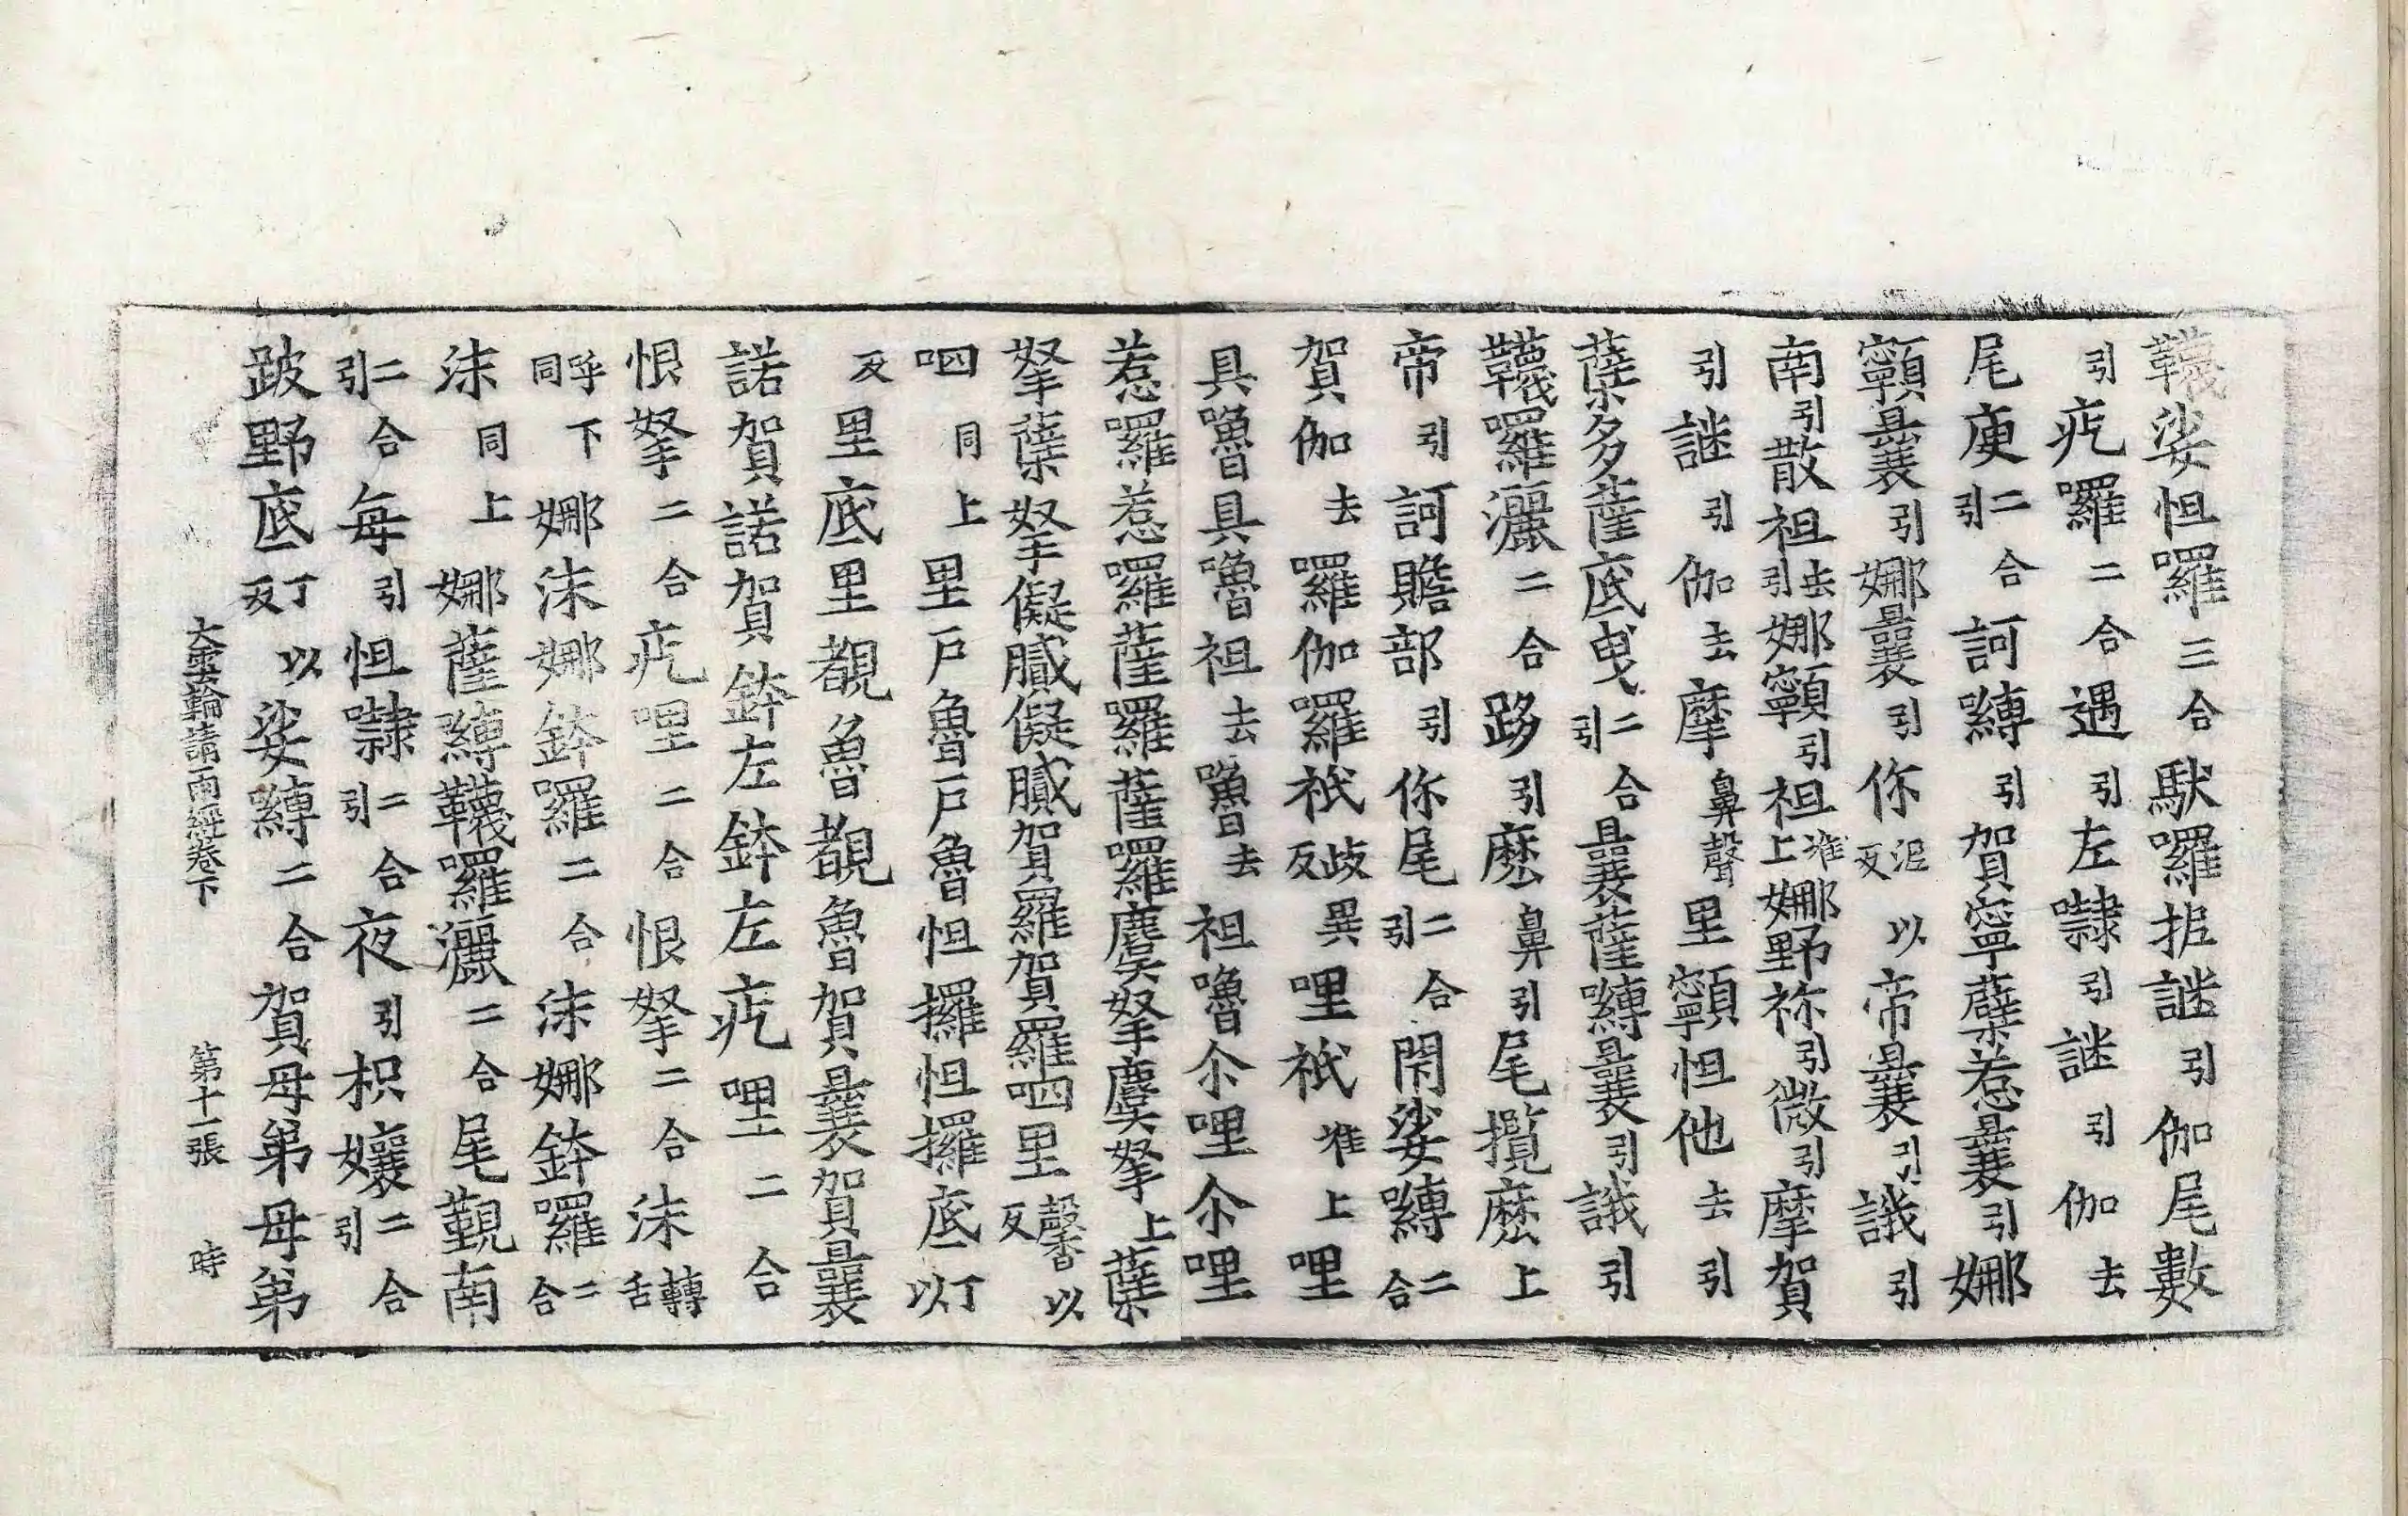 韈娑怛囉三合馱囉抳謎引伽尾數
引疙囉二合遇引左隸引謎引伽去
尾庾二合引訶嚩引賀寧蘗惹曩引娜
顐曩引娜曩引你泥以反帝曩引誐引
南引散祖去引娜顐引祖准上娜野祢引微引摩賀
引謎引伽去摩鼻聲里顐怛他去引
蘖多薩底曳二合引曩薩嚩曩引誐引
韈囉灑二合跢引麼鼻引尾攬麼上
帝引訶贍部引你尾二合引閇娑嚩二合
賀伽去囉伽囉祇歧異反哩祇准上哩
具嚕具嚕祖去嚕去祖嚕尒哩尒哩
惹囉惹囉薩囉薩囉麌拏麌拏上蘖
拏蘖拏儗膩儗膩賀羅賀羅呬里馨以反
呬同上里戶魯戶魯怛攞怛攞底丁以
反里底里覩魯覩魯賀曩賀曩
諾賀諾賀鉢左鉢左疙哩二合
恨拏二合疙哩二合恨拏二合沬轉舌
呼下同娜沬娜鉢囉二合沬娜鉢囉二合
沬同上娜薩嚩韈囉灑二合尾覲南
二合引每引怛隸二合引夜引枳孃二合引
跛野底丁以反娑嚩二合賀母弟母弟
大雲輪請雨經卷下 第十一張 時